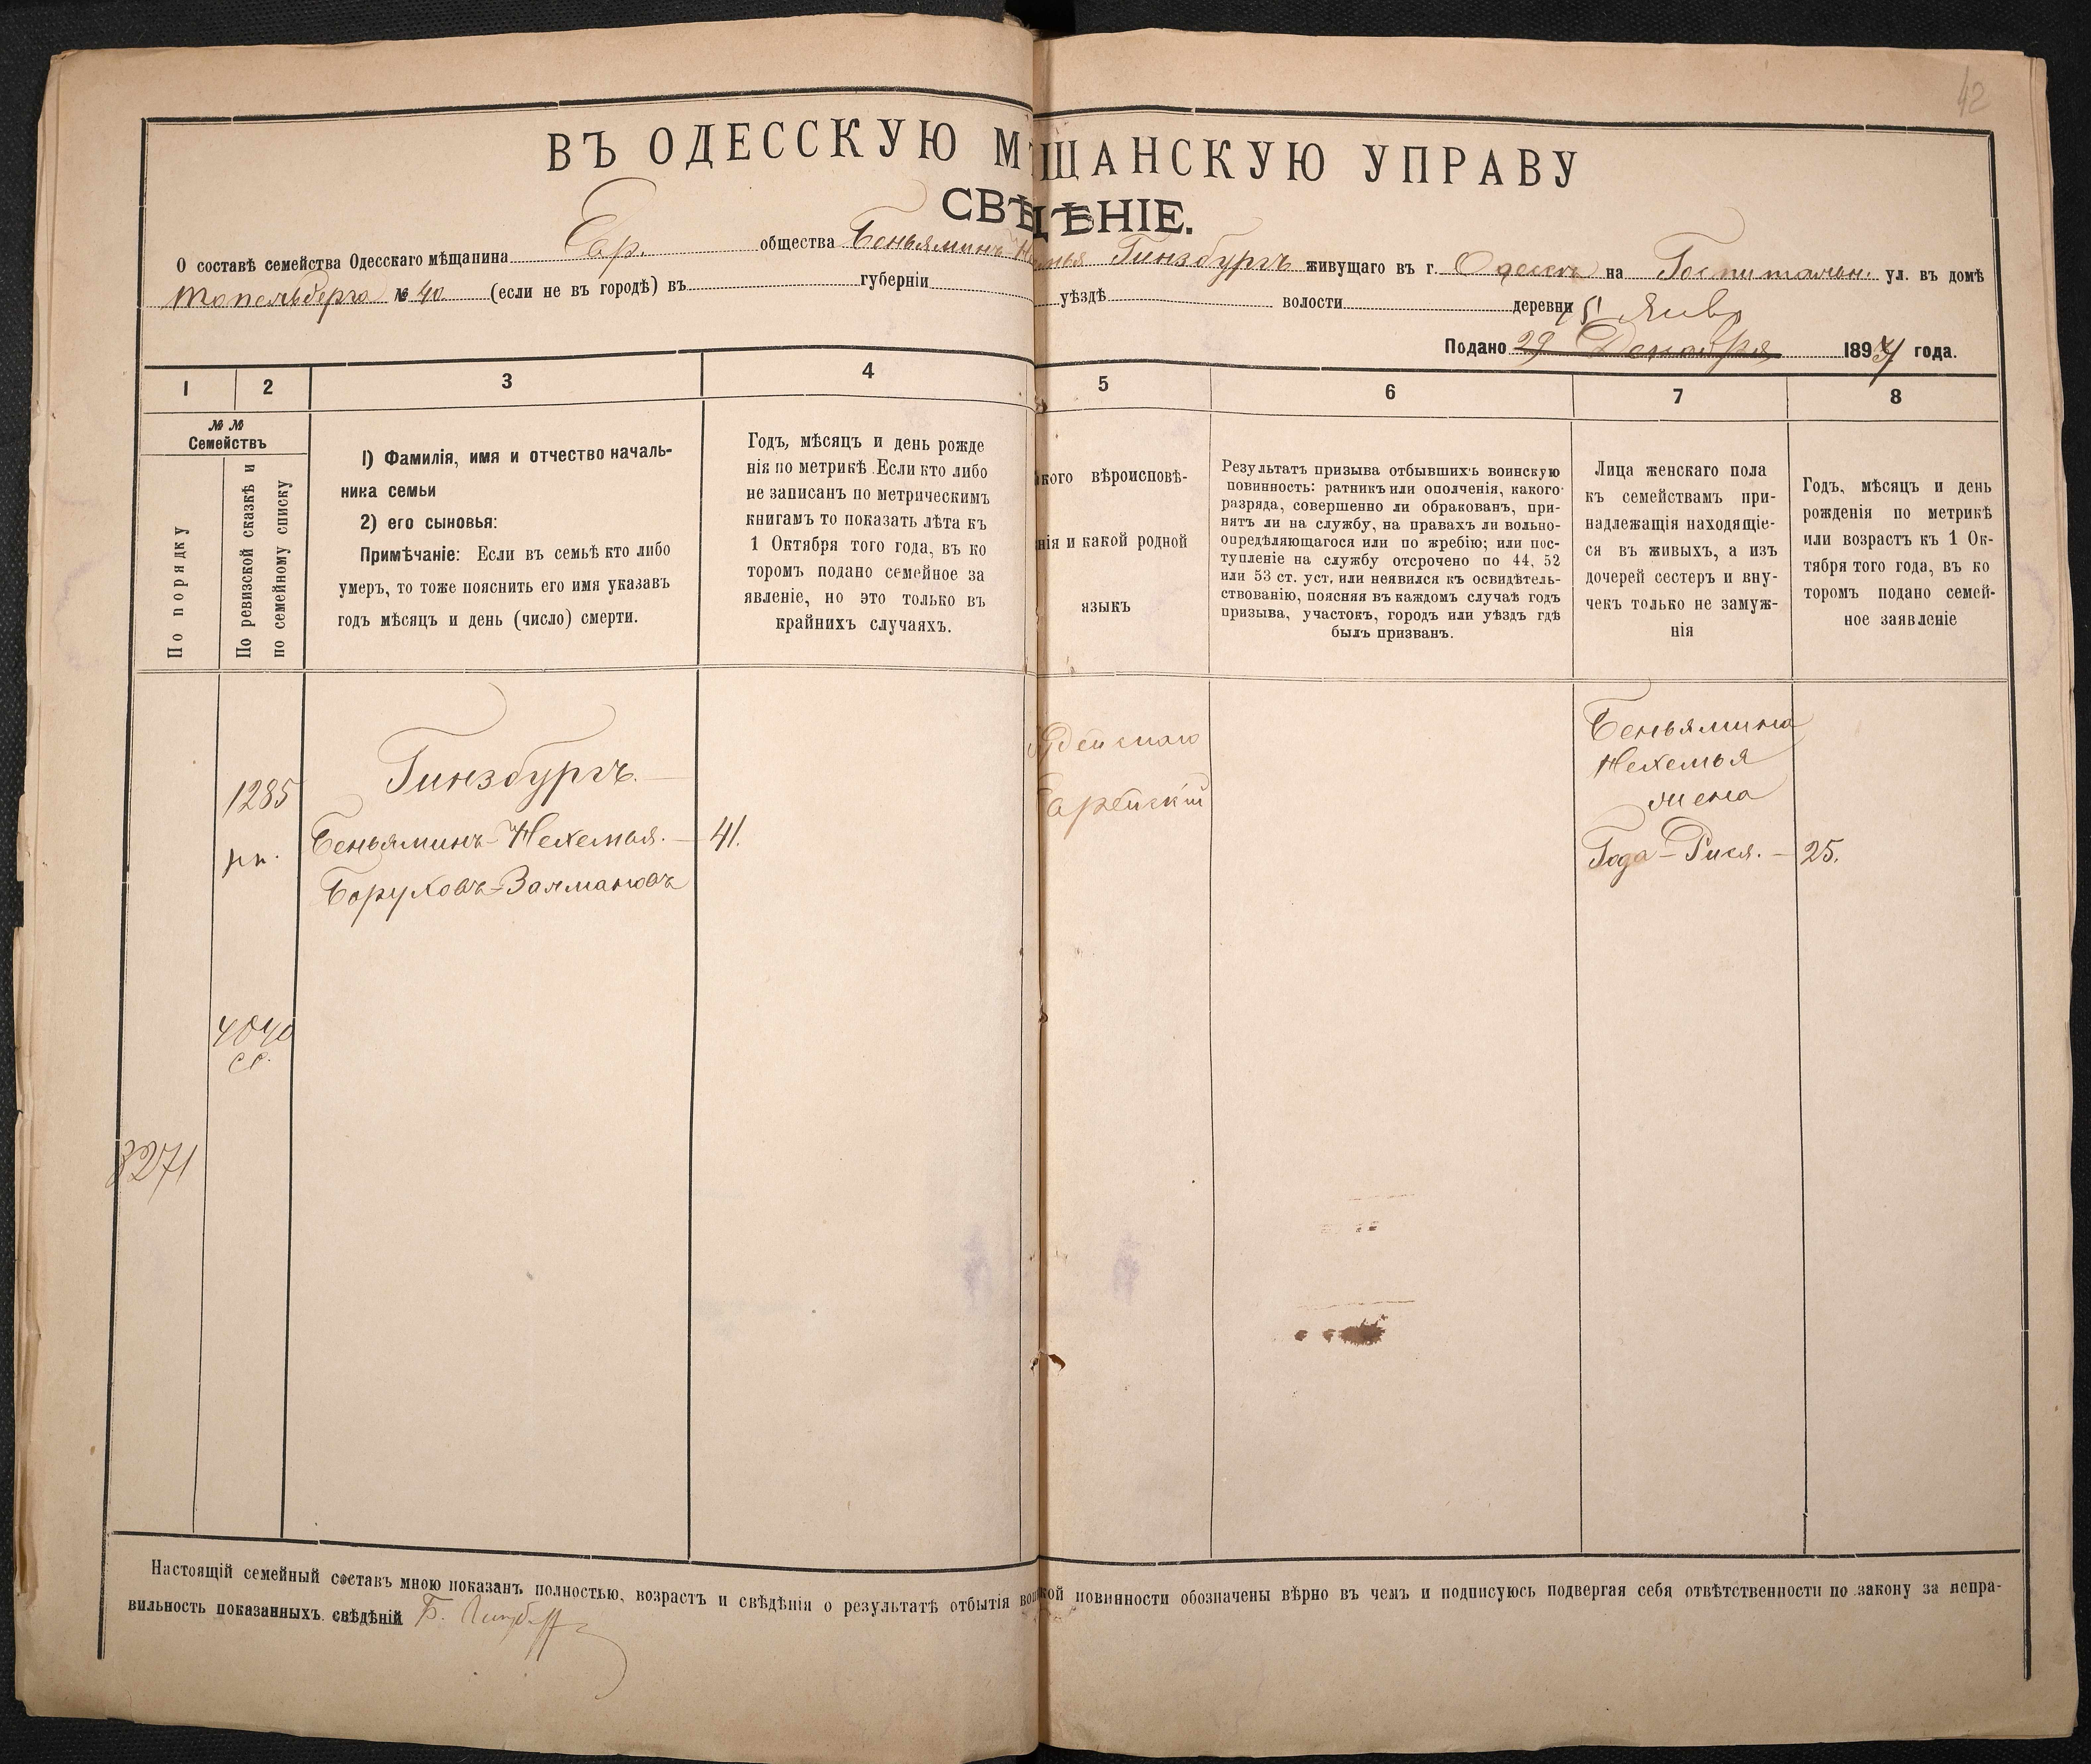 42
ВЪ ОДЕССКУЮ М ЩАНСКУЮ УПРАВУ
СВѢДѢНІЕ.
О составѣ семейства Одесскаго мѣщанина Евр. общества Беньяминъ Не мья Гинзбургъ живущаго въ г. Одессѣ на Госпитальн. ул. въ домѣ
Топельберга № 40 (если не въ городѣ) въ губерніи уѣздѣ волости деревни
5 Янвр
Подано 29 Декабря 1894 года.
1 2 3 4 5 6 7 8
№ №
Семействъ
По порядку
По ревизской сказкѣ и
по семейному списку
1) Фамилія, имя и отчество началь-
ника семьи
2) его сыновья:
Примѣчаніе: Если въ семьѣ кто либо
умеръ, то тоже пояснить его имя указавъ
годъ мѣсяцъ и день (число) смерти.
Годъ, мѣсяцъ и день рожде
нія по метрикѣ. Если кто либо
не записанъ по метрическимъ
книгамъ то показать лѣта къ
1 Октября того года, въ ко
торомъ подано семейное за
явленіе, но это только въ
крайнихъ случаяхъ.
кого вѣроисповѣ-
нія и какой родной
языкъ
Результатъ призыва отбывшихъ воинскую
повинность: ратникъ или ополченія, какого
разряда, совершенно ли обракованъ, при-
нятъ ли на службу, на правахъ ли вольно-
опредѣляющагося или по жребію; или пос-
тупленіе на службу отсрочено по 44, 52
или 53 ст. уст. или неявился къ освидѣтель-
ствованію, поясняя въ каждомъ случаѣ годъ
призыва, участокъ, городъ или уѣздъ гдѣ
былъ призванъ.
Лица женскаго пола
къ семействамъ при-
надлежащія находящіе-
ся въ живыхъ, а изъ
дочерей сестеръ и вну-
чекъ только не замуж-
нія
Годъ, мѣсяцъ и день
рожденія по метрикѣ
или возрастъ къ 1 Ок-
тября того года, въ ко
торомъ подано семей-
ное заявленіе
1285
рк.
Гинзбургъ.
Беньяминъ-Нехемья. — 41.
Боруховъ-Залмановъ
удейскаго
Еврейскій
Беньямина
Нехемья
жена
Года-Рися. — 25.
4040
сс.
8271
Настоящій семейный составъ мною показанъ полностью, возрастъ и свѣдѣнія о результатѣ отбытія вои ской повинности обозначены вѣрно въ чемъ и подписуюсь подвергая себя отвѣтственности по закону за непра-
вильность показанныхъ свѣдѣній Б.